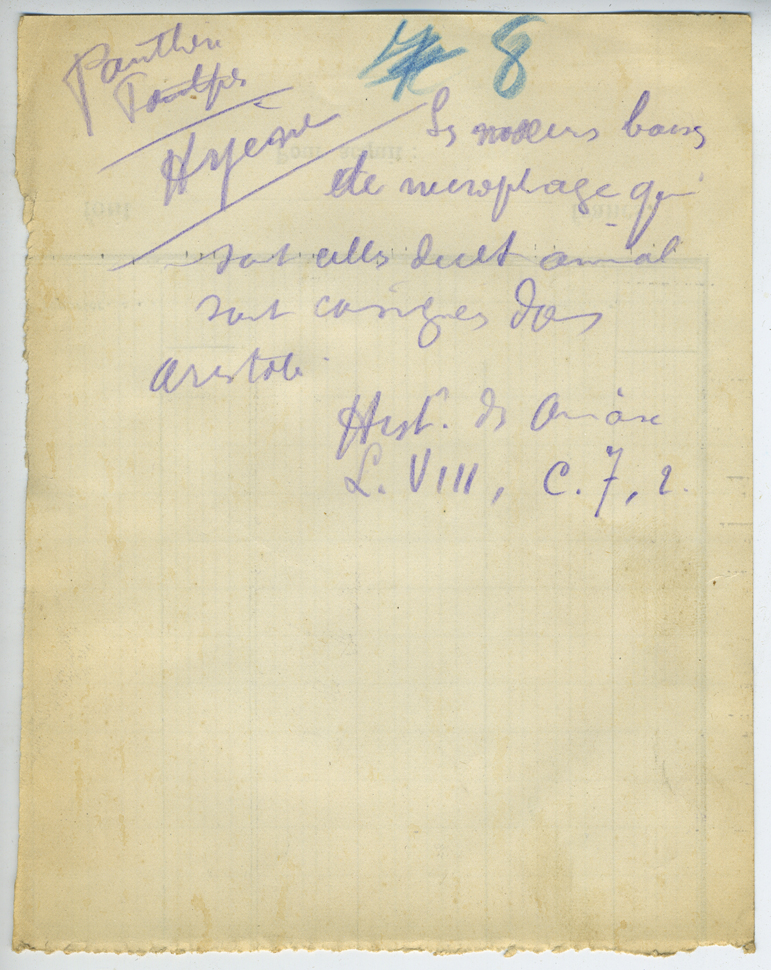 Panthère
8
Hyène
Les moeurs
de necrophage qui
sont celles de cet animal
sont consignées dans
Aristote.
Hist. des Animaux
L. VIII, C. 7, 2.